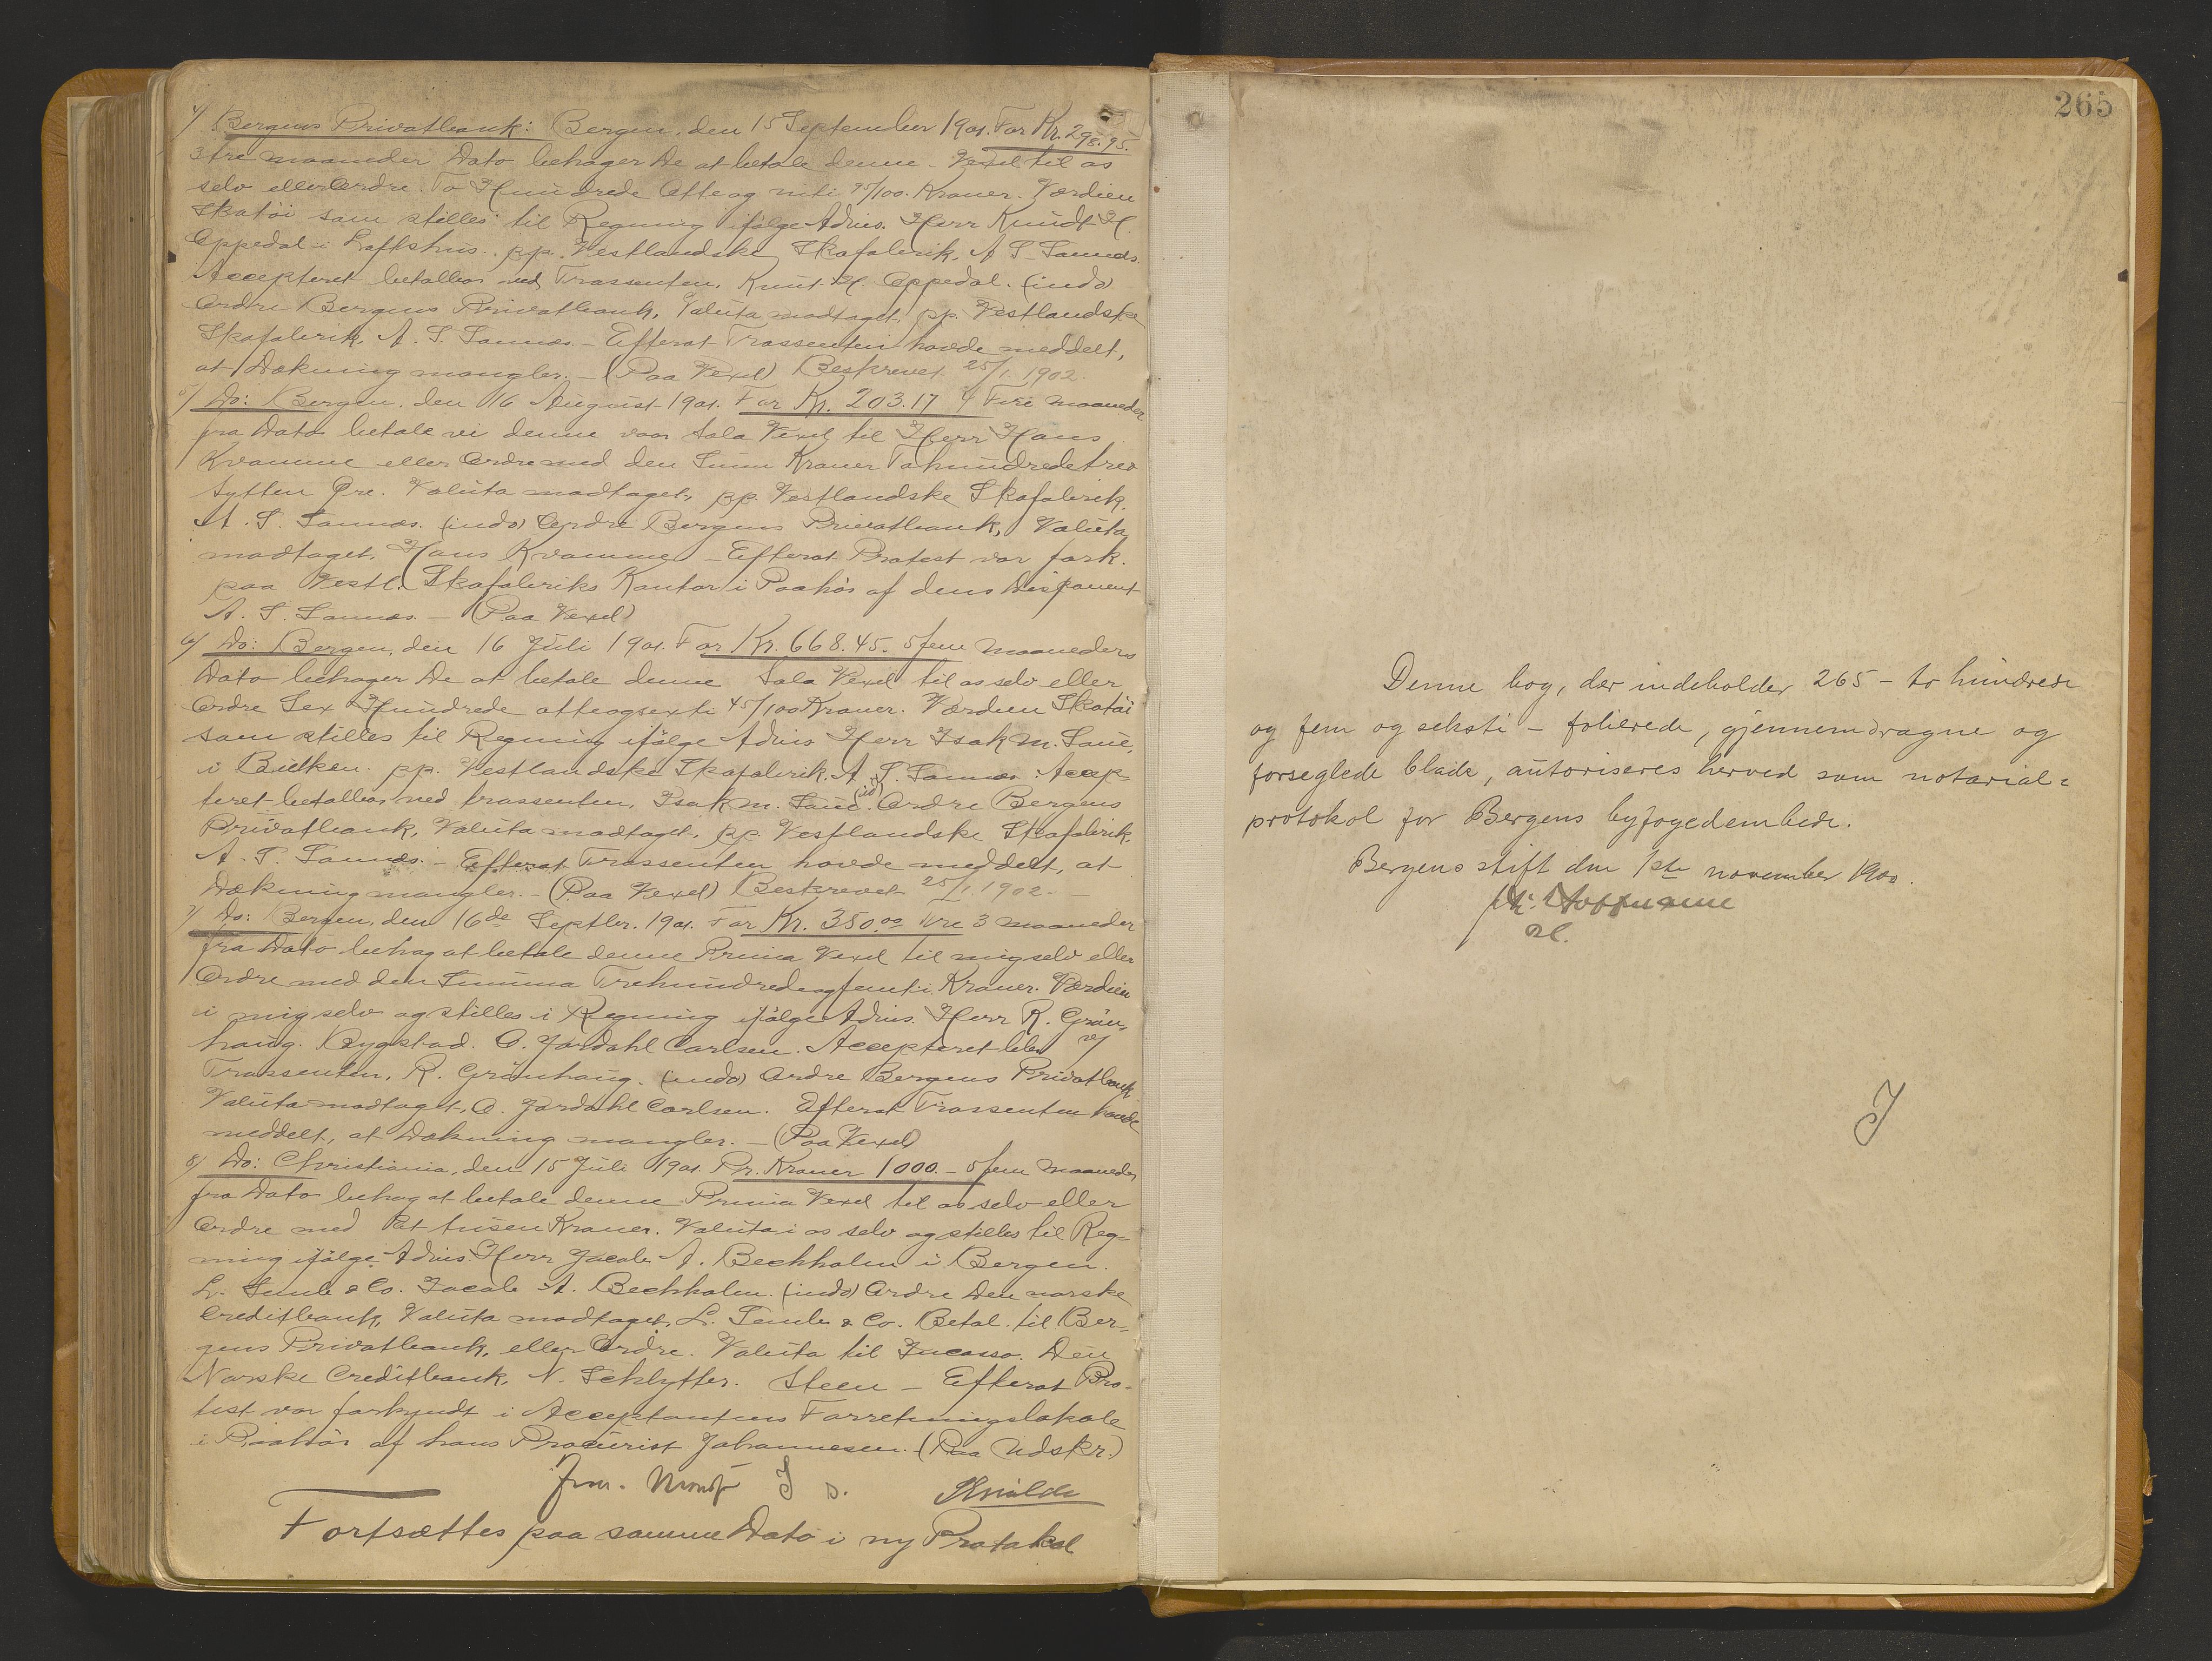 4) Bergens Privatbank: Bergen, den 15 September 1901. For Kr. 298.95.
3 tre maaneder Dato behager De at betale denne Vexel til os
selv eller Ordre To Hundrede Otte og niti 95/100 Kroner. Værdien
Skotöi som stilles til Regning ifölge Advis. Herr Knudt H.
Oppedal i Loftshus. pp. Vestlandske Skofabrik, A S Sannes.
Accepteret betalbar ved Trassenten, Knut H. Oppedal. (indo)
Ordre Bergens Privatbank, Valuta modtaget, pp. Vestlandske
Skofabrik, A. S. Sannes. - Efterat Trassenten havde meddelt,
at Dækning mangler. - (Paa Vexel) Beskrevet 25/1. 1902.
5) Do: Bergen, den 16 August 1901. For Kr. 203.17 4 Fire Maaneder
fra Dato betale vi denne vaar Sola Vexel til Herr Hans
Kvamme eller Ordre med den Sum Kroner Tohundredetreo
Sytten Öre. Valuta modtaget, pp. Vestlandske Skofabrik,
A. S. Sannes. (indo) Ordre Bergens Privatbank, Valuta
modtaget, Hans Kvamme - Efterat Protest var fork.
paa Vestl. Skofabriks Kontor i Paahör af dens Disponent
A. S. Sannes. - (Paa Vexel)
6) Do: Bergen, den 16 Juli 1901. For Kr. 668.45. 5 fem Maaneders
Dato behager De at betale denne Sola Vexel til os selv eller
Ordre Sex Hundrede otteogsexti 45/100 Kroner. Værdien Skotöi
som stilles til Regning ifölge Advis Herr Isak M. Saue,
i Bulken. pp. Vestlandske Skofabrik. A. S. Sannes. Accep-
teret betalbar ved trassenten, Isak M. Saue. (io) Ordre Bergens
Privatbank, Valuta modtaget, pp. Vestlandske Skofabrik,
A. S. Sannes. - Efterat Trassenten havde meddelt, at
Dækning mangler. - (Paa Vexel) Beskrevet 25/1. 1902. -
7) Do: Bergen, den 16de Septbr. 1901. For Kr. 350.00 Tre 3 maaneder
fra Dato behag at betale denne Prima Vexel til mig selv eller
Ordre med den Summa Trehundredeogfemti Kroner. Værdien
i mig selv og stilles i Regning ifölge Advis. Herr R. Grön-
haug. Bygstad. O. Jordahl Carlsen. Accepteret v/
Trassenten, R. Grönhaug. (indo) Ordre Bergens Privatbank
Valuta modtaget, O. Jordahl Carlsen. Efterat Trassenten havde
meddelt, at Dækning mangler. - (Paa Vexel)
8) Do: Christiania, den 15 Juli 1901. Pr. Kroner 1000. - 5 fem Maaneder
fra Dato behag at betale denne Prima Vexel til os selv eller
Ordre med Et tusen Kroner. Valuta i os selv og stilles til Reg-
ning ifölge Advis. Herr Jacob A. Bechholm i Bergen.
L. Semb & Co. Jacob A. Bechholm. (indo) Ordre Den norske
Creditbank, Valuta modtaget, L. Semb & Co. Betal til Ber-
gens Privatbank, eller Ordre. Valuta til Incasso. Den
Norske Creditbank, N. Schlytter. Steen - Efterat Pro-
test var forkyndt i Acceptantens Forretningslokale
i Paahör af hans Procurist Johannesen. (Paa Udskr.)
Fortsættes paa samme Dato i ny Protokol
265
Denne bog, der indeholder 265 - to hundrede
og fem og seksti - folierede, gjennemdragne og
forseglede blade, autoriseres herved som notarial=
protokol for Bergens byfogedembede.
Bergens stift den 1ste november 1900.